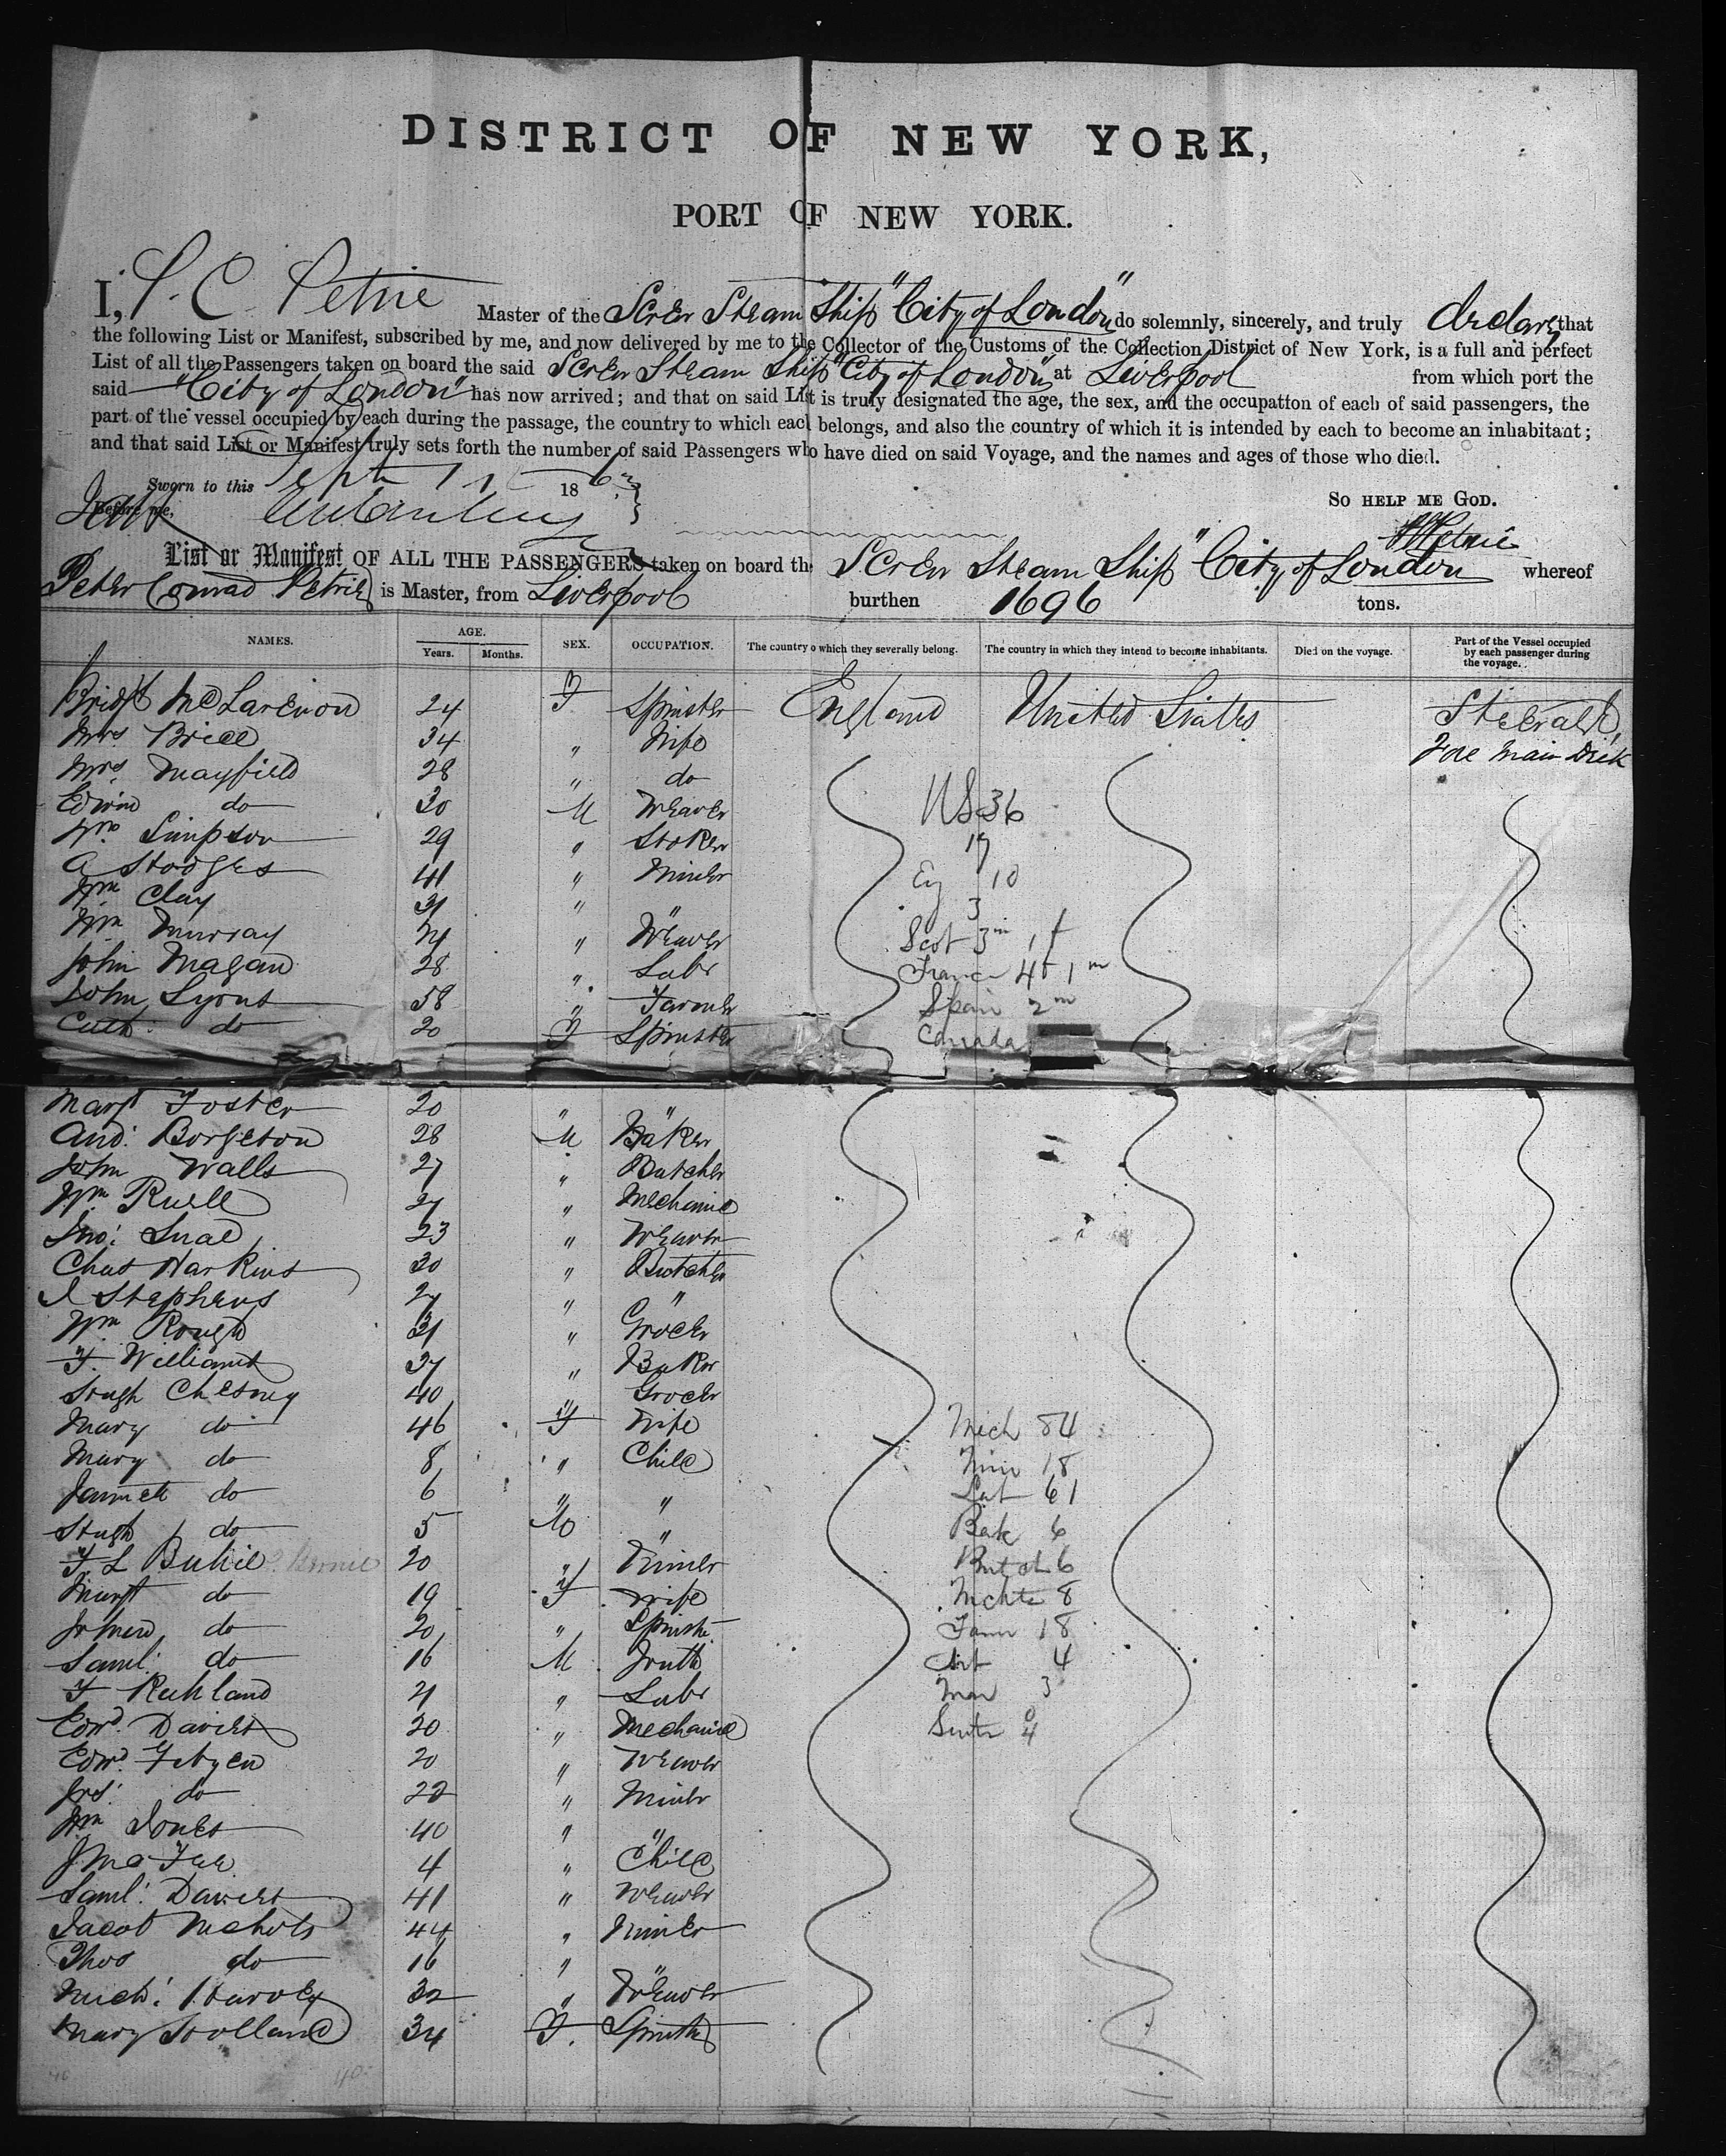 DISTRICT OF NEW YORK,
PORT OF NEW YORK.
I, P. C. Petrie Master of the Screw Steam Ship "City of London" do solemnly, sincerely, and truly declare that
the following List or Manifest, subscribed by me, and now delivered by me to the Collector of the Customs of the Collection District of New York, is a full and perfect
List of all the Passengers taken on board the said Screw Steam Ship "City of London" at Liverpool from which port the
said "City of London" has now arrived; and that on said List is truly designated the age, the sex, and the occupation of each of said passengers, the
part of the vessel occupied by each during the passage, the country to which each belongs, and also the country of which it is intended by each to become an inhabitant;
and that said List or Manifest truly sets forth the number of said Passengers who have died on said Voyage, and the names and ages of those who died.
Sworn to this Sept 186 SO HELP ME GOD.
Before me,
PCPetrie
List or Manifest OF ALL THE PASSENGERS taken on board the Screw Steam Ship "City of London whereof
Peter Conrad Petrie is Master, from Liverpool burthen 1696 tons.
NAMES. AGE. Years. Months. SEX. OCCUPATION. The country to which they severally belong. The country in which they intend to become inhabitants. Died on the voyage. Part of the Vessel occupied by each passenger during the voyage.
Bridgt McLarenon 24 F Spinster England United States Steerage
Mrs. Brice 34 " Wife Fore Main Deck
Mrs. Mayfield 28 " do
Edwin do 30 M Weaver US 36
Wm Simpson 29 " Stoker 17
A Hodges 41 " Miner Eng 10
Wm Clay 31 " " 3
Wm Murray 24 " Weaver Scot 3m 1f
John Magan 28 " Labr France 4f 1m
John Lyons 58 " Farmer Spain 2m
Cath: do 20 F Spinster Canada
Margt Foster 20 " "
And: Borgeton 28 M Baker
John Walls 27 " Butcher
Wm Ruell 27 " Mechanic
Jno: 23 " Weaver
Chas Harkins 30 " Butcher
J Stephens 27 " "
Wm Rough 31 " Grocer
F. Williams 37 " Baker
Hugh Chesney 40 " Grocer
Mary do 46 F Wife Mech 84
Mary do 8 " Child Min 18
Jannet do 6 " " Lab 61
Hugh do 5 M " Bak 6
F. L 20 " Miner Butch 6
Margt do 19 F Wife 8
do 20 " Spinstr Farm 18
Saml: do 16 M Youth Art 4
F Richland 21 " Labr Mar 3
Edwd. Davies 20 " Mechanic 4
Edwd. 20 " Weaver
do 22 " Miner
Wm Jones 40 " "
J McFee 4 " Child
Saml: Davies 41 " Weaver
Jacob Nichols 44 " Miner
Thos do 16 " "
Mich: Harvey 32 " Weaver
Mary Holland 34 F. Spinster